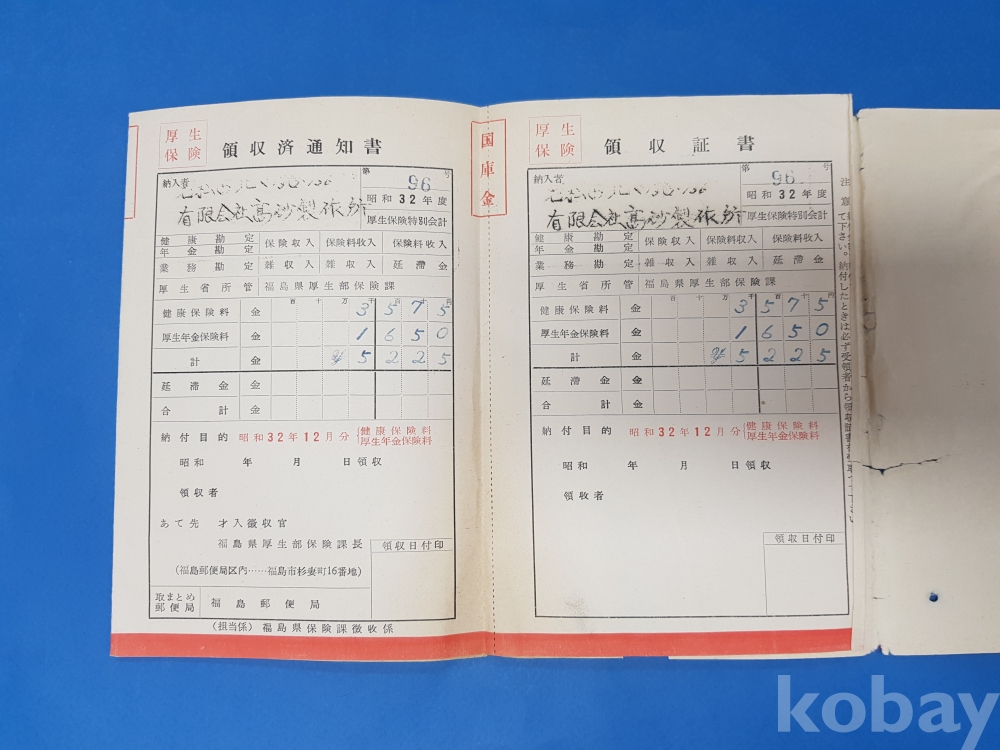 厚生
保険
領収済通知書
納入者
第 96 号
昭和32年度
有限会社高砂製作所
厚生保険特別会計
健康勘定 保険収入 保険料収入 保険料収入
年金勘定
業務勘定 雑収入 雑収入 延滞金
厚生省所管 福島県厚生部保険課
百 十 万 千 百 十 円
健康保険料 金 3 5 7 5
厚生年金保険料 金 1 6 5 0
計 金 ¥ 5 2 2 5
延滞金 金
合計 金
納付目的 昭和32年12月分 健康保険料
厚生年金保険料
昭和 年 月 日領収
領収者
あて先 才入徴収官
福島県厚生部保険課長
領収日付印
(福島郵便局区内……福島市杉妻町16番地)
取まとめ
郵便局
福島郵便局
(担当係) 福島県保険課徴収係
国庫金
厚生
保険
領収証書
納入者
第 96 号
昭和32年度
有限会社高砂製作所
厚生保険特別会計
健康勘定 保険収入 保険料収入 保険料収入
年金勘定
業務勘定 雑収入 雑収入 延滞金
厚生省所管 福島県厚生部保険課
百 十 万 千 百 十 円
健康保険料 金 3 5 7 5
厚生年金保険料 金 1 6 5 0
計 金 ¥ 5 2 2 5
延滞金 金
合計 金
納付目的 昭和32年12月分 健康保険料
厚生年金保険料
昭和 年 月 日領収
領收者
領収日付印
て下さい。納付したときは必ず受領者から領収証書を
kobay